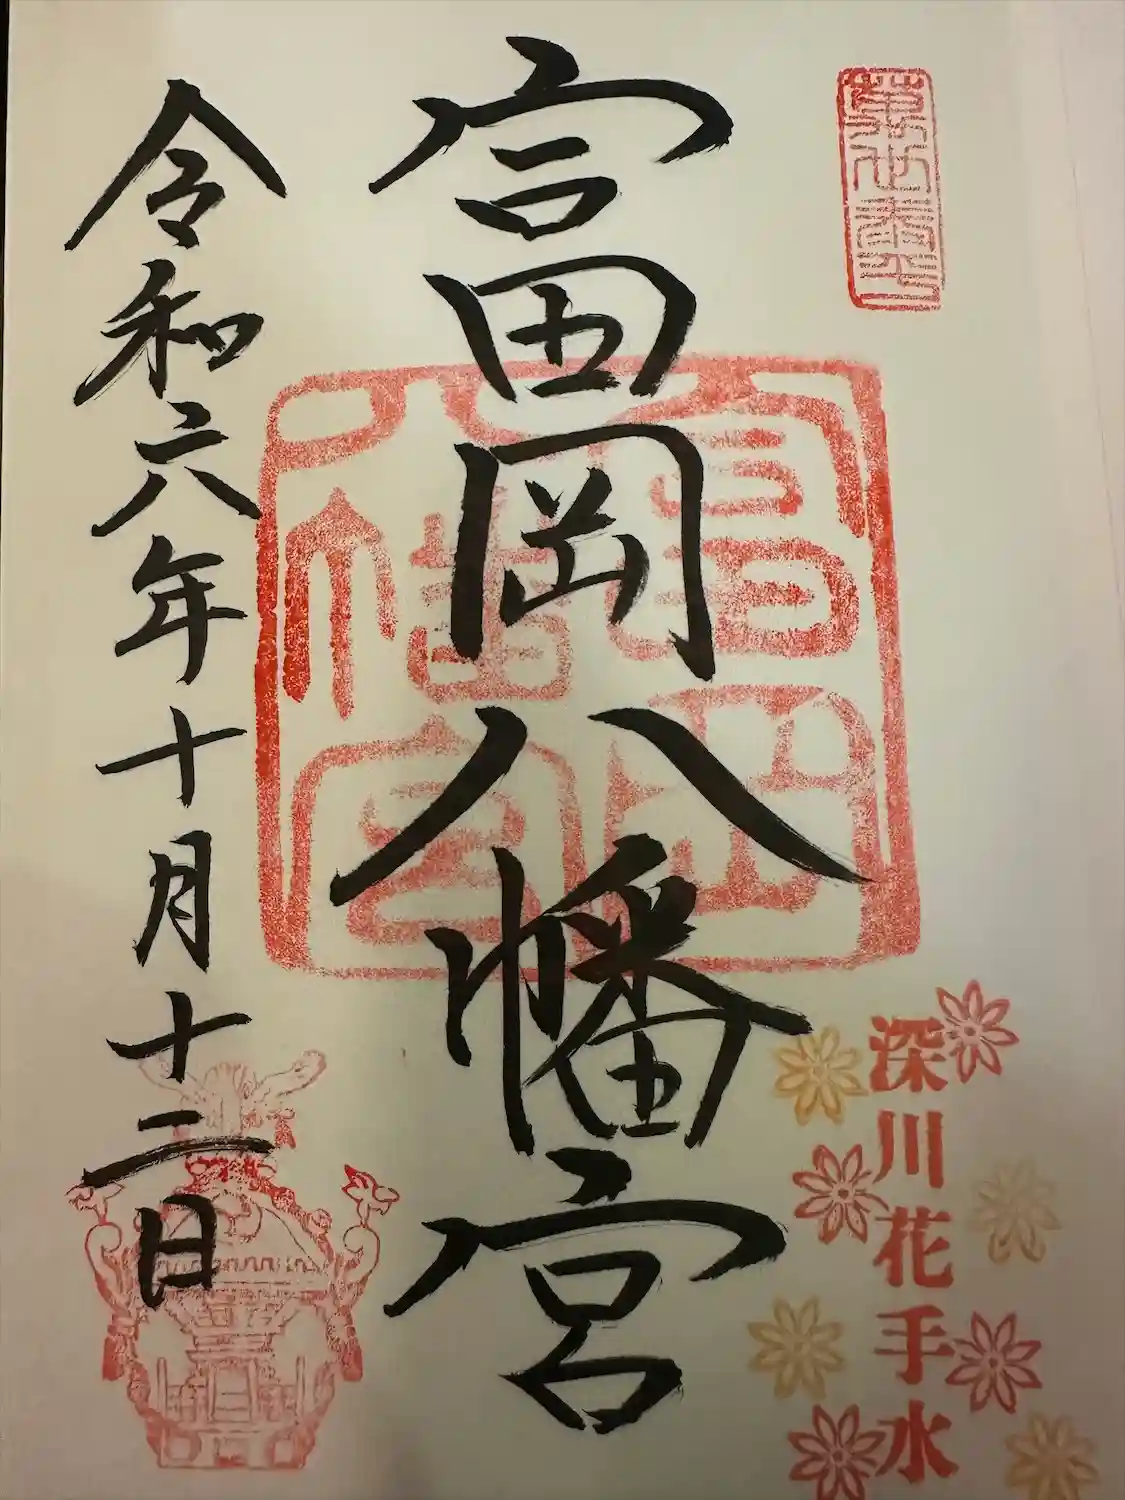 深川花手水
富岡八幡宮
富岡
八幡宮
令和六年十月十二日